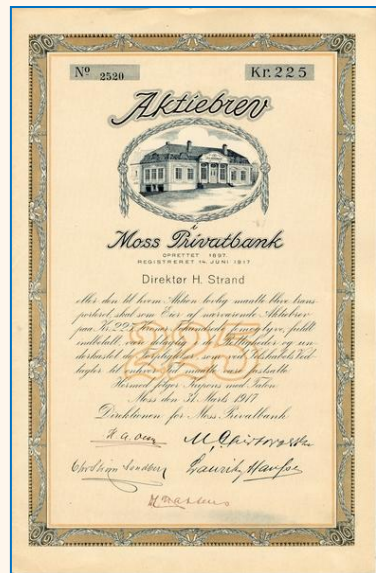 No 2520 Kr. 225
Aktiebrev
i
Moss Privatbank
OPRETTET 1897.
REGISTRERET 14. JUNI 1917
Direktør H. Strand
eller den til hvem Aktien lovlig maatte blive trans-
porteret, skal som Eier af nærværende Aktiebrev
paa Kr. 225 Kroner tohundrede femogtyve, fuldt
indbetalt, være delagtig i Rettigheder og un-
derkastet de Forpligtelser som ved Selskabets Ved-
tægter til enhver tid maatte være fastsatte.
Hermed følger Kupons med Talon.
Moss den 31. Marts 1917
Direktionen for Moss Privatbank
225
Christian Sandberg Lauritz Hansen